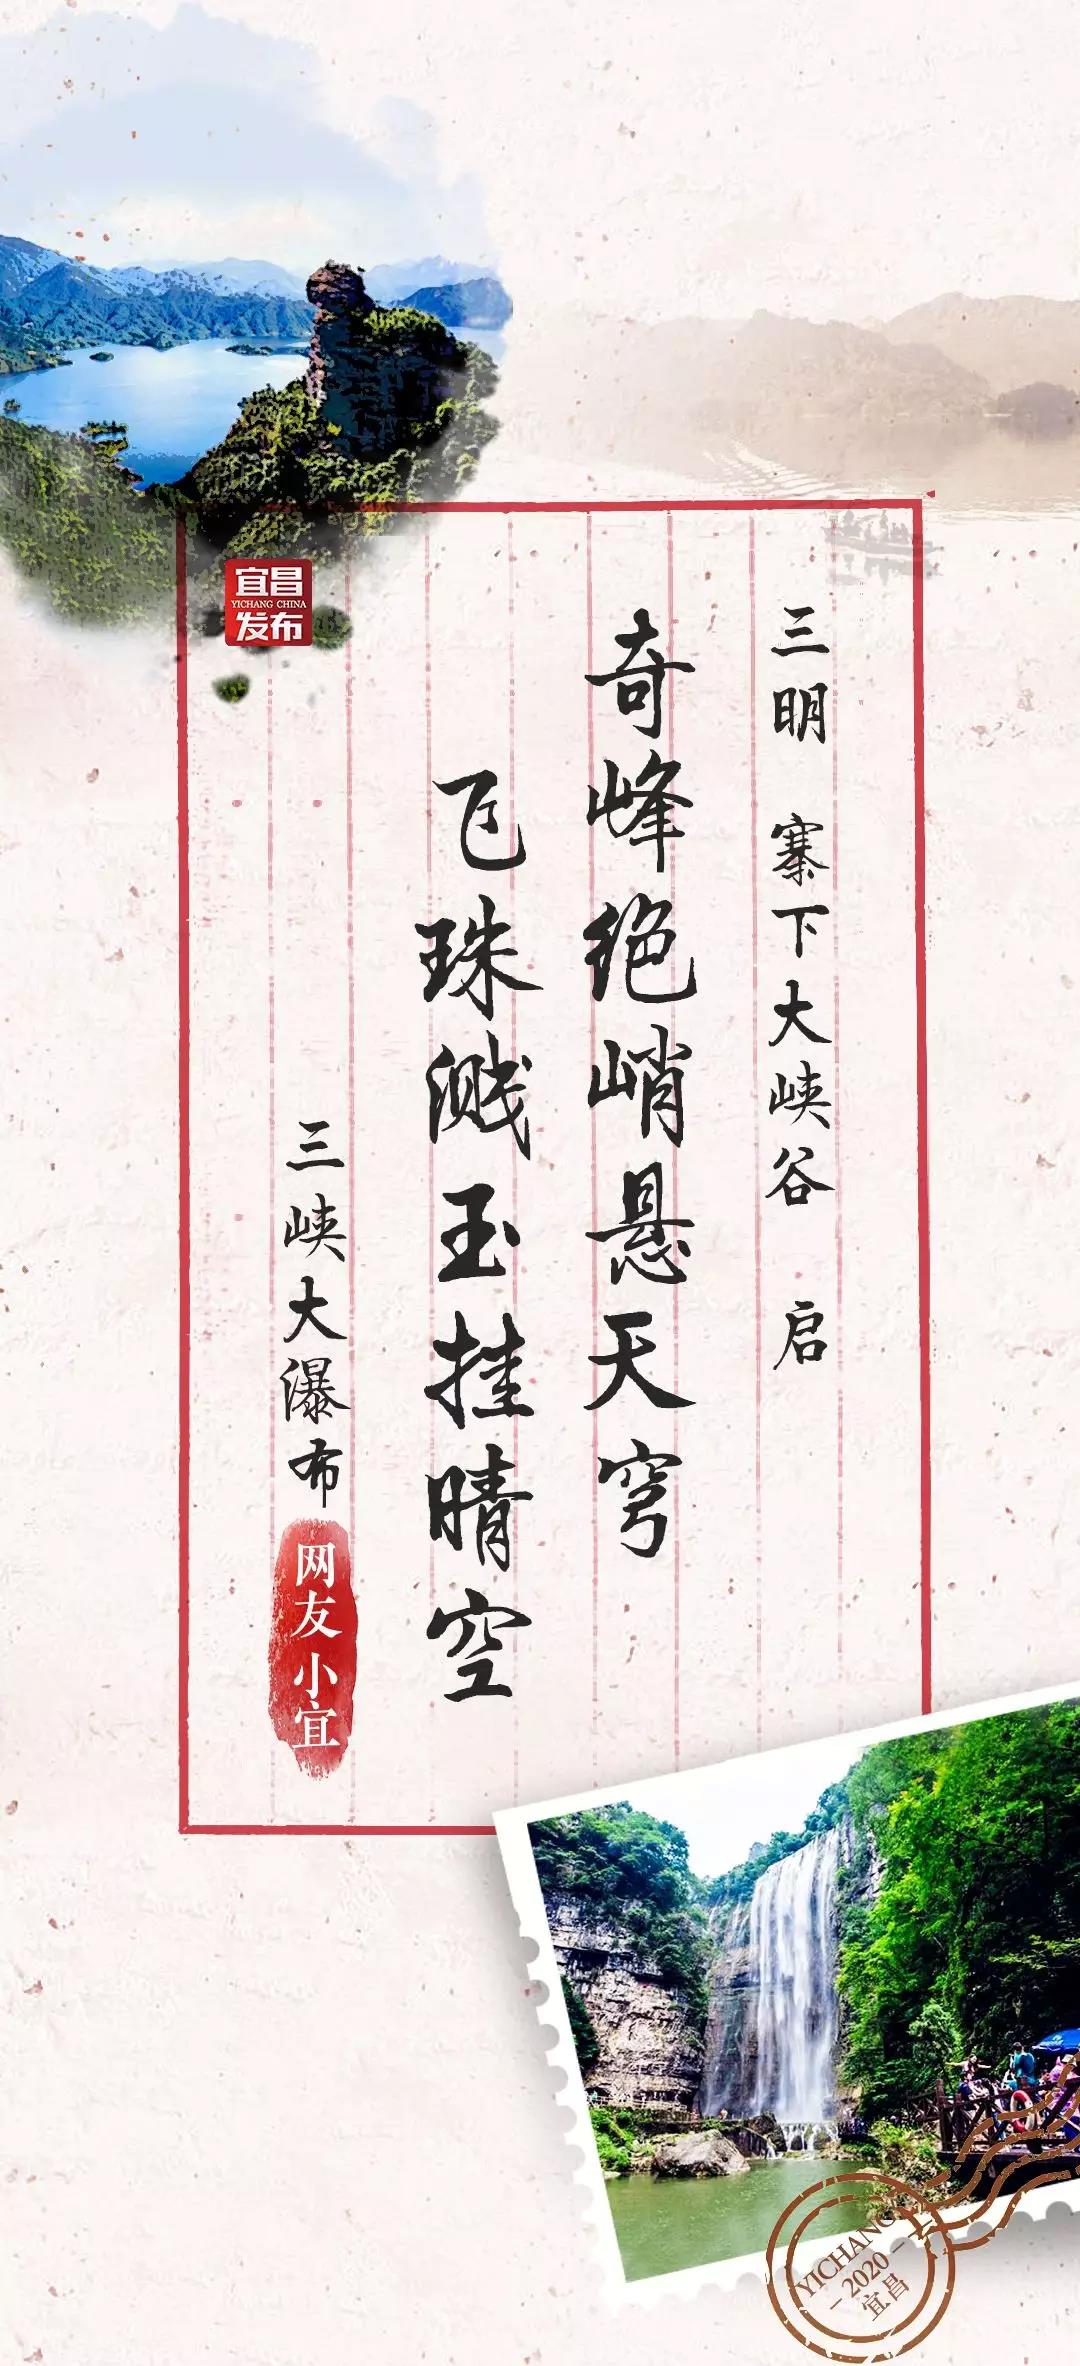 宜昌
YICHANG CHINA
发布
三明 寨下大峡谷 启
奇峰绝峭悬天穹
飞珠溅玉挂晴空
三峡大瀑布
网友小宜
YICHANG
-2020-
宜昌